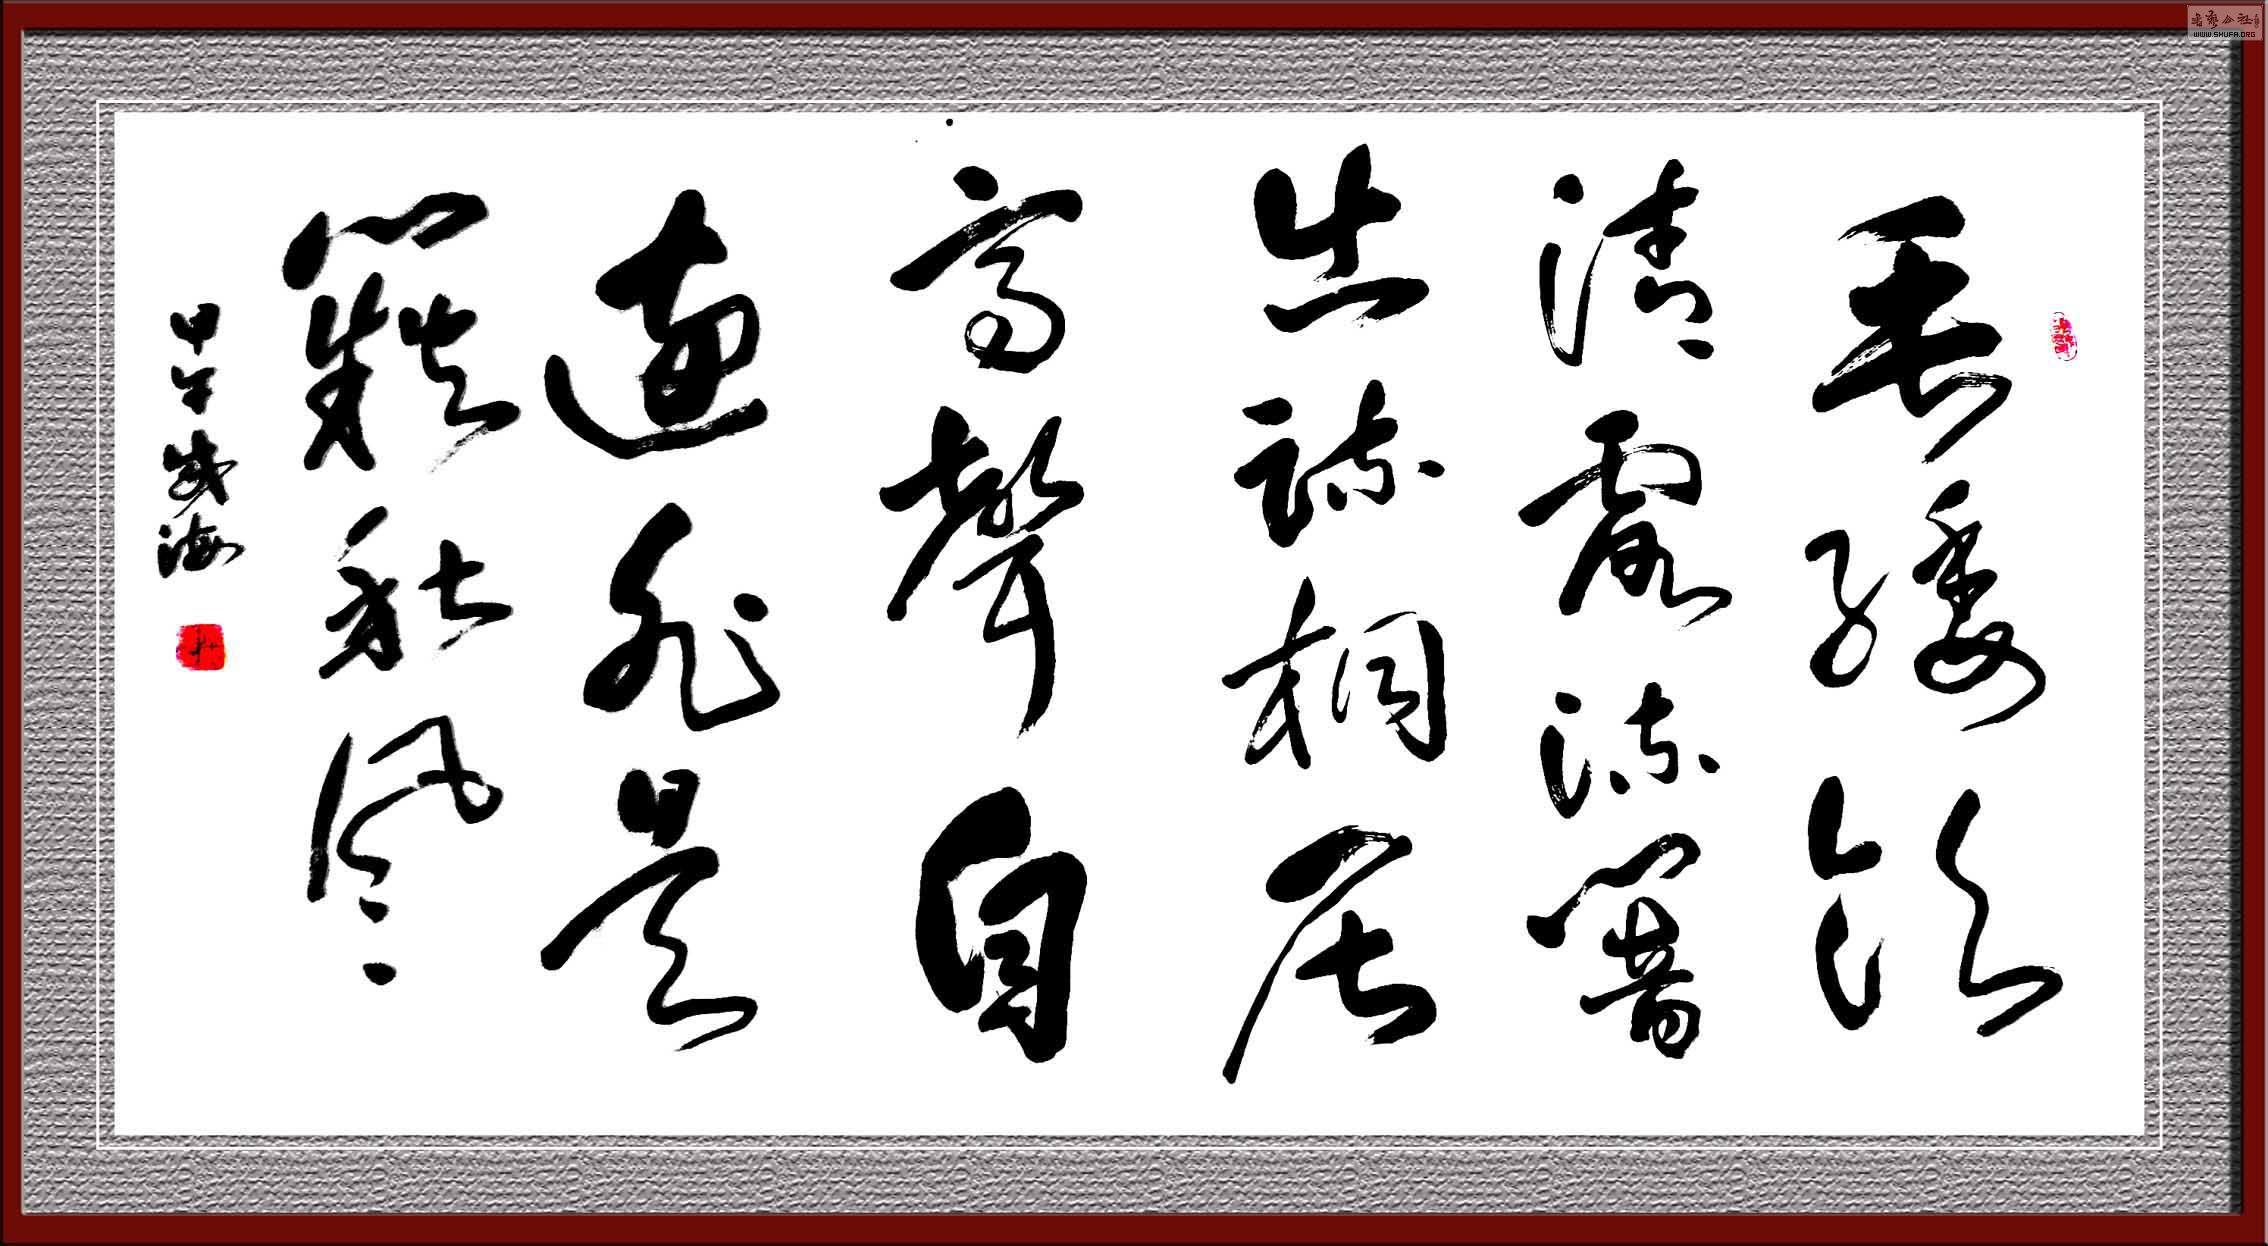 垂緌飲
清露流響
出疏桐居
高聲自
遠非是
藉秋風
甲午海
書藝公社
WWW.SHUFA.ORG